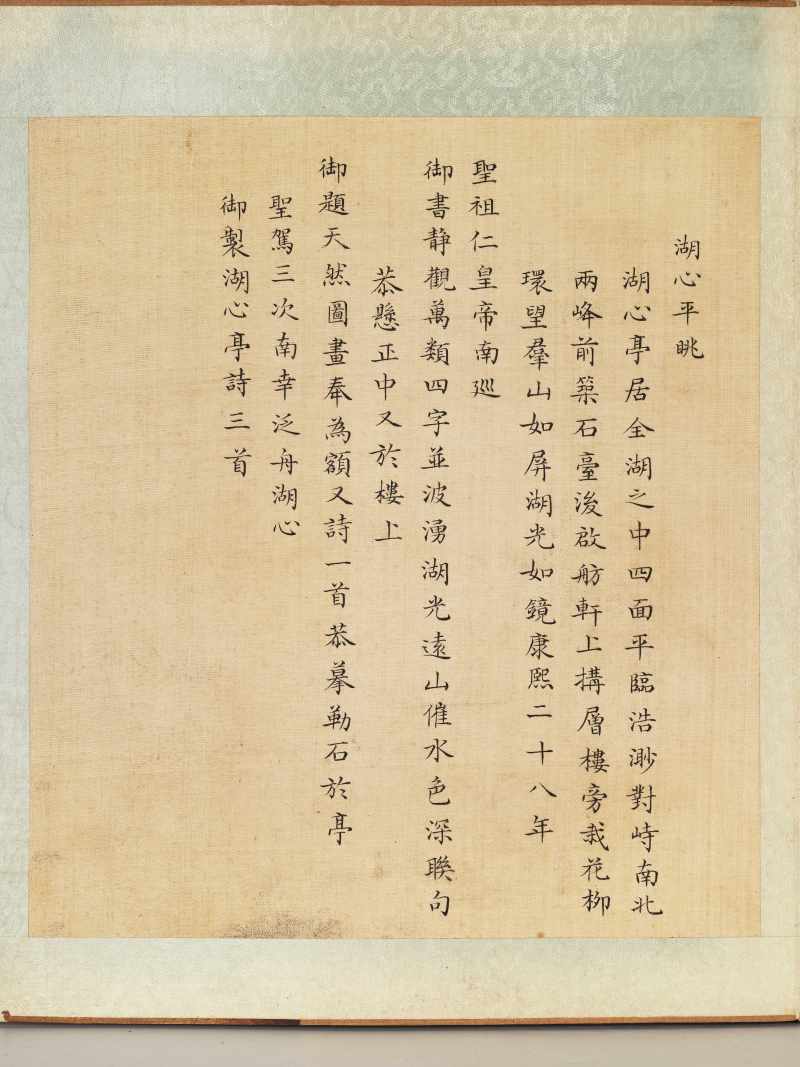 湖心平眺
湖心亭居全湖之中四面平臨浩渺對峙南北
兩峰前築石臺後啟舫軒上搆層樓旁栽花柳
環望羣山如屏湖光如鏡康熙二十八年
聖祖仁皇帝南巡
御書静觀萬類四字並波湧湖光遠山催水色深聯句
恭懸正中又於樓上
御題天然圖畫奉為額又詩一首恭摹勒石於亭
聖駕三次南幸泛舟湖心
御製湖心亭詩三首